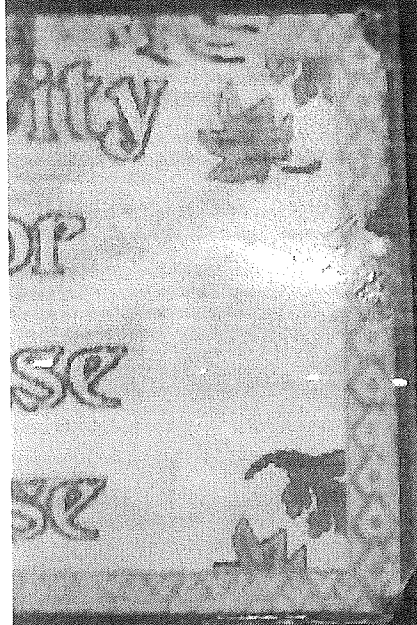 ity
or
se
se